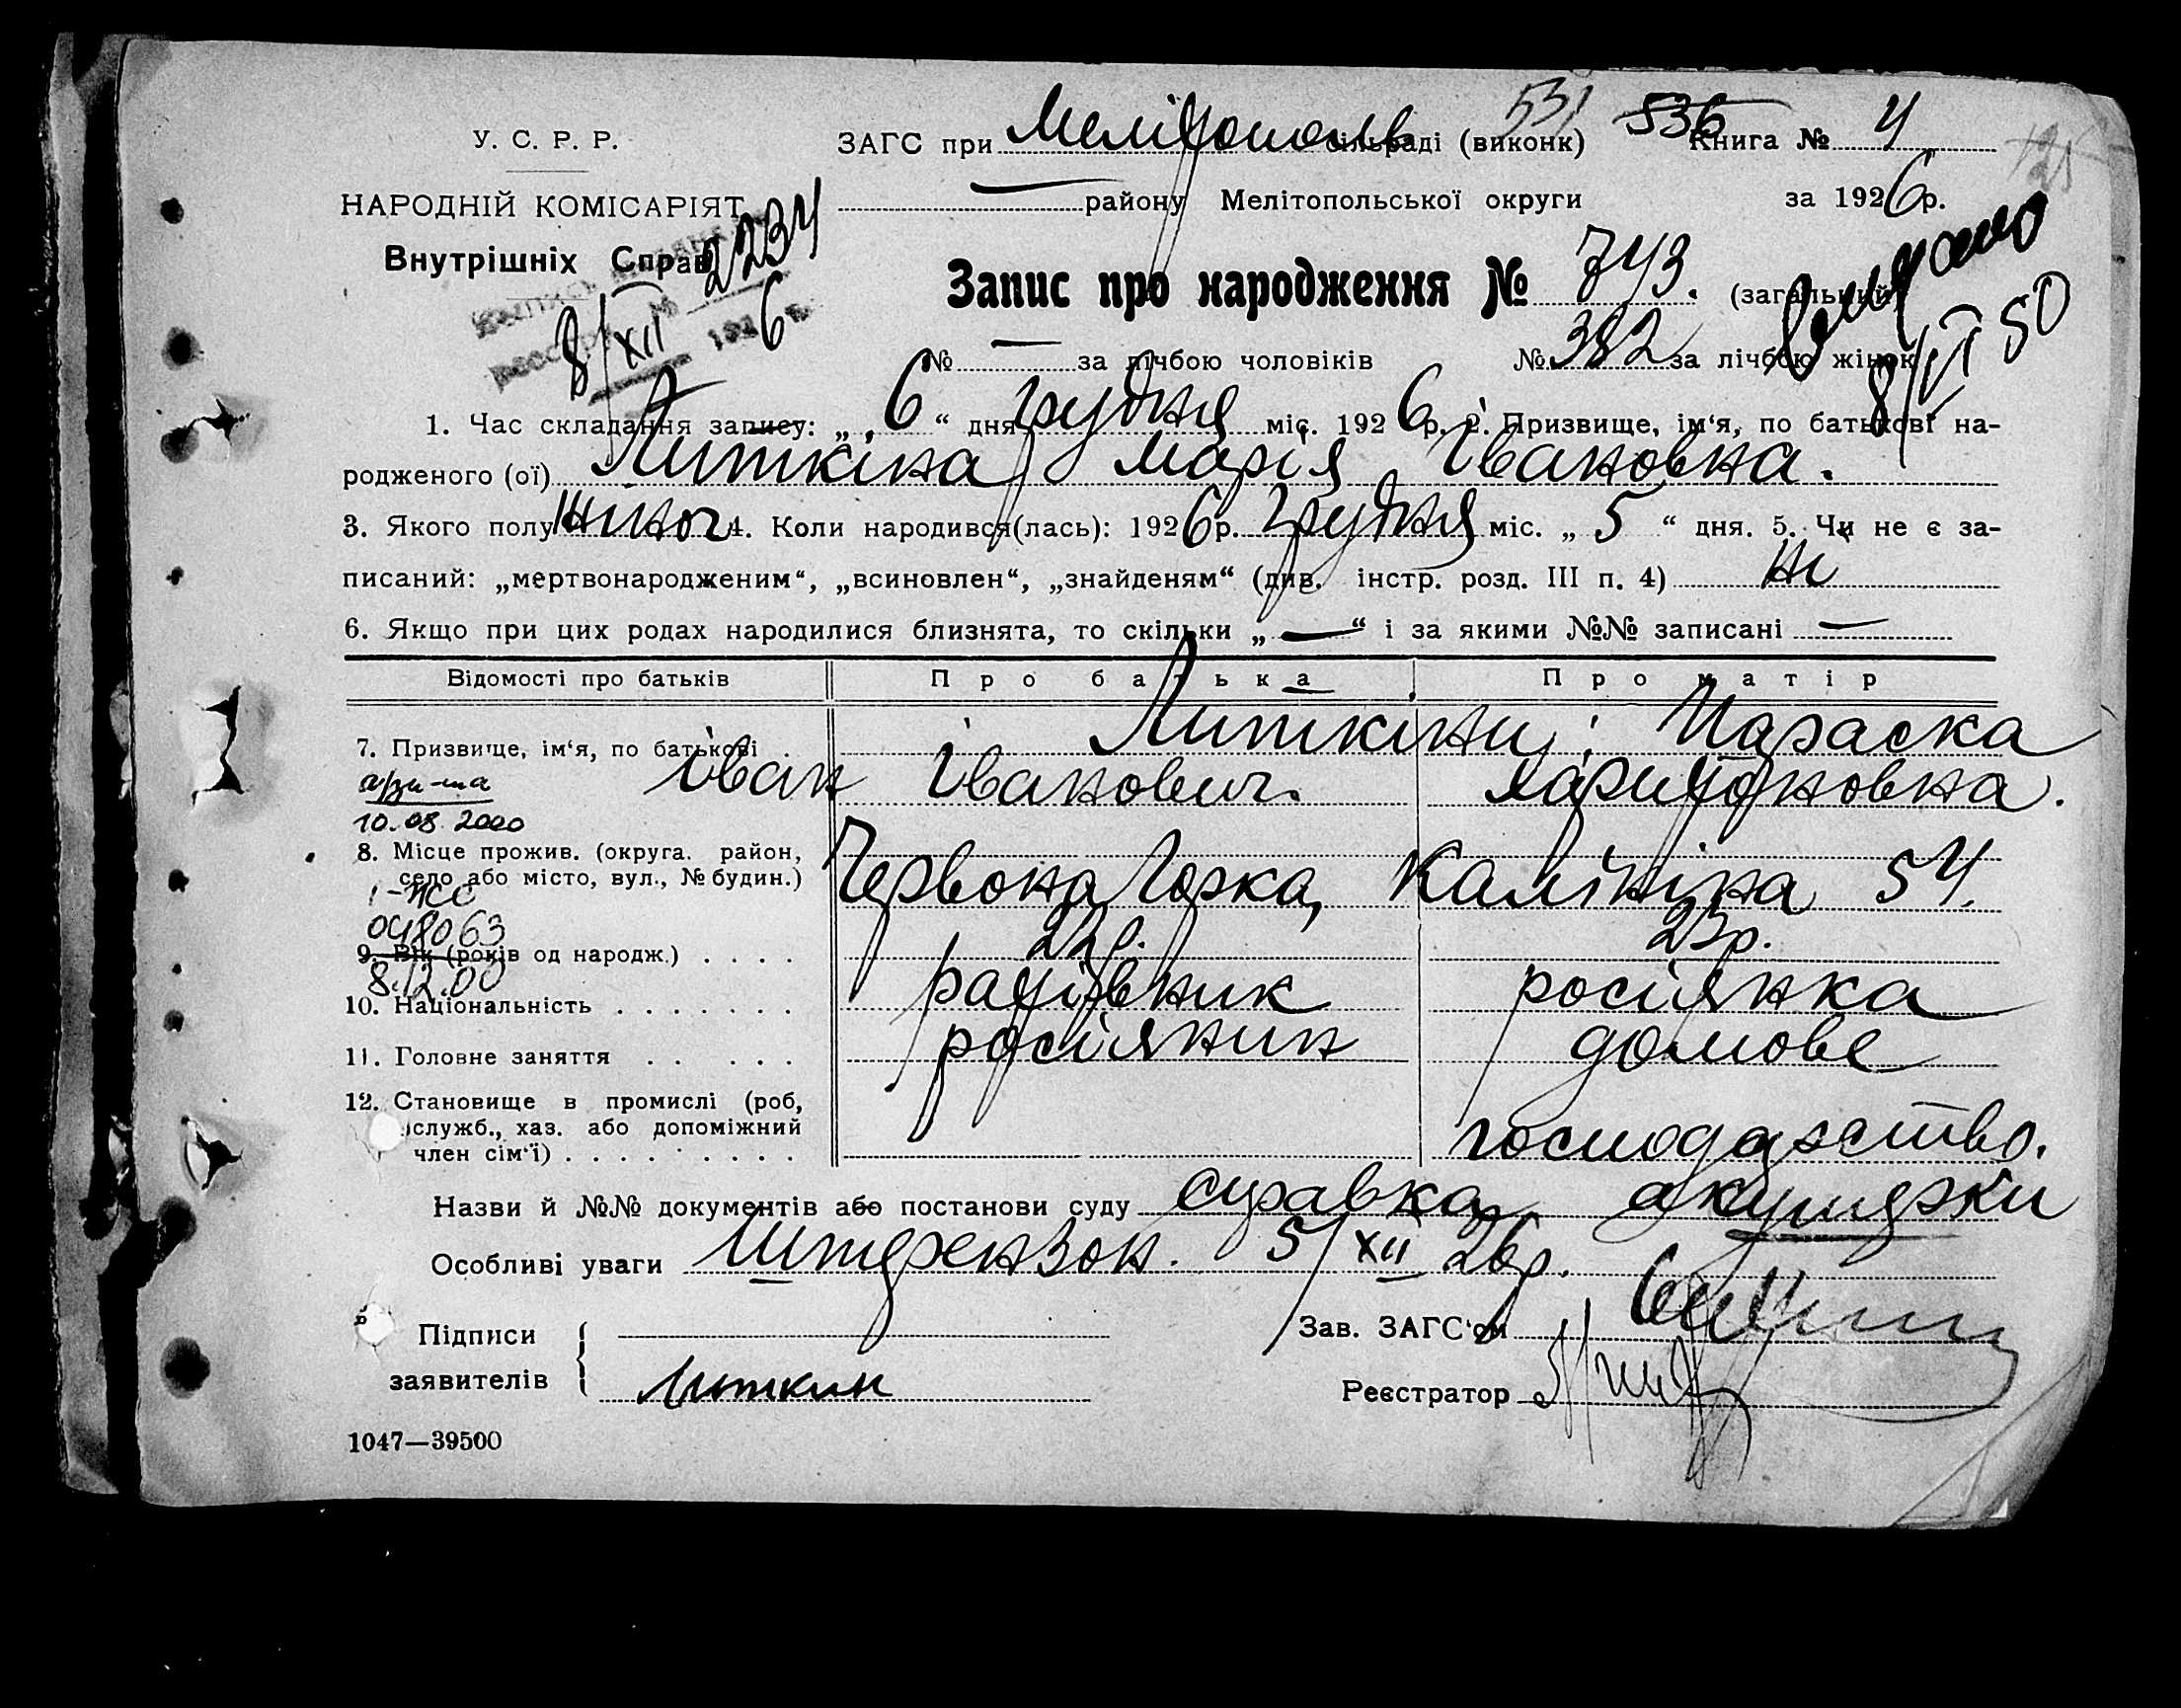 531 536
У. С. Р. Р. ЗАГС при Мелітополь сільраді (виконк) Книга № 4
НАРОДНІЙ КОМІСАРІЯТ — району Мелітопольської округи за 1926 р.
Внутрішніх Справ 2234
Запис про народження № 743. (загальний)
Видано 8/VI 50
8/XII 1926
№ — за лічбою чоловіків № 382 за лічбою жінок
1. Час складання запису: „ 6 “ дня грудня міс. 1926 р. 2. Призвище, ім‘я, по батькові на-
родженого (ої) Литкіна Марія Івановна.
3. Якого полу жіноч 4. Коли народився(лась): 1926 р. грудня міс. „ 5 “ дня. 5. Чи не є за-
писаний: „мертвонародженим“, „всиновлен“, „знайденям“ (див. інстр. розд. III п. 4) ні
6. Якщо при цих родах народилися близнята, то скільки „ — “ і за якими №№ записані —
Відомості про батьків Про батька Про матір
7. Призвище, ім‘я, по батькові Литкіни: Параска
Іван Іванович. Харитоновна.
10.08.2000
8. Місце прожив. (округа. район,
село або місто, вул., № будин.) Червона Горка, Калініна 54.
048063
9. Вік (років од народж.) . . . . 22р. 23р.
8.12.00
10. Національність . . . . . . . рацівник росіянка
11. Головне заняття . . . . . росіянин домове
12. Становище в промислі (роб,
служб., хаз. або допоміжний
член сім‘ї) . . . . . . . . . господарство.
Назви й №№ документів або постанови суду справка акушерки
Особливі уваги Штерензон. 5/XII 26р.
Підписи Зав. ЗАГС‘ом
заявителів Литкин Реєстратор
1047—39500